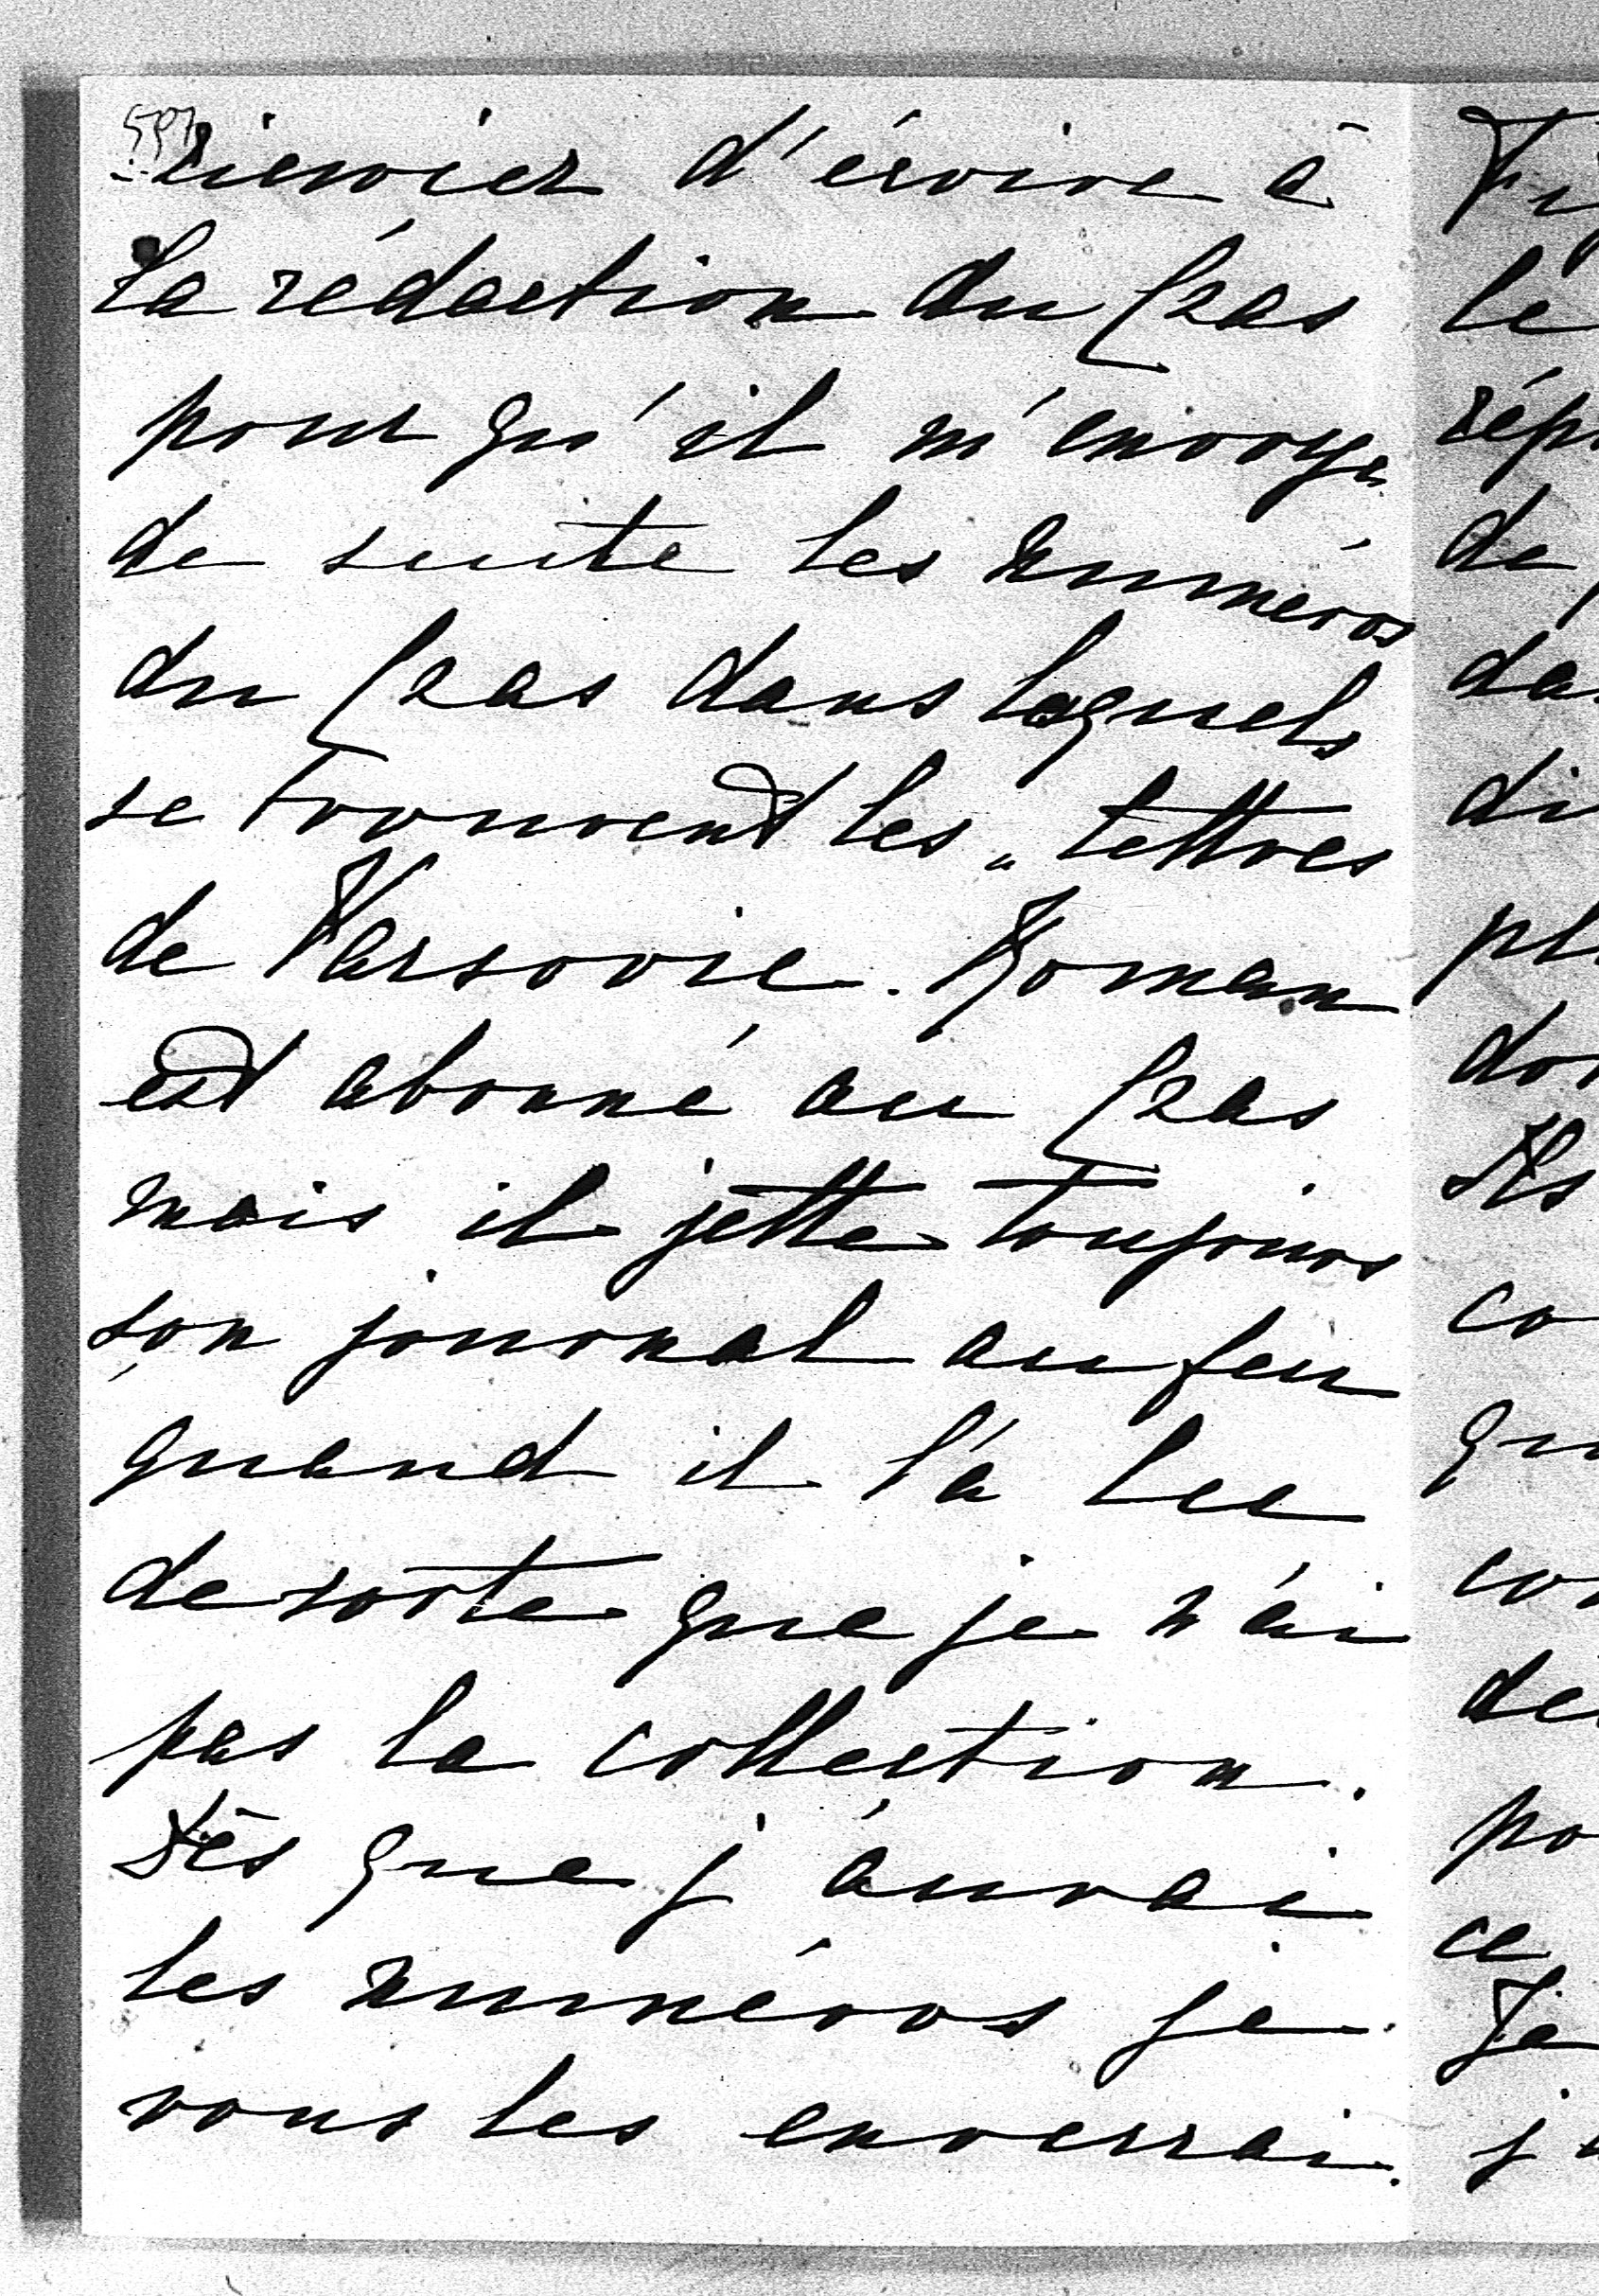 d'écrire à
la rédaction du Czas
pour qu'il m'envoye
de suite les numéros
du Czas dans lequels
se trouvent les „ lettres
de Varsovie. Roman
est abonné au Czas
mais il jette toujours
son journal au feu
quand il l'a lu
de sorte que je n'ai
pas la collection.
Dès que j'aurai
les numéros je
vous les enverrai.
le
de